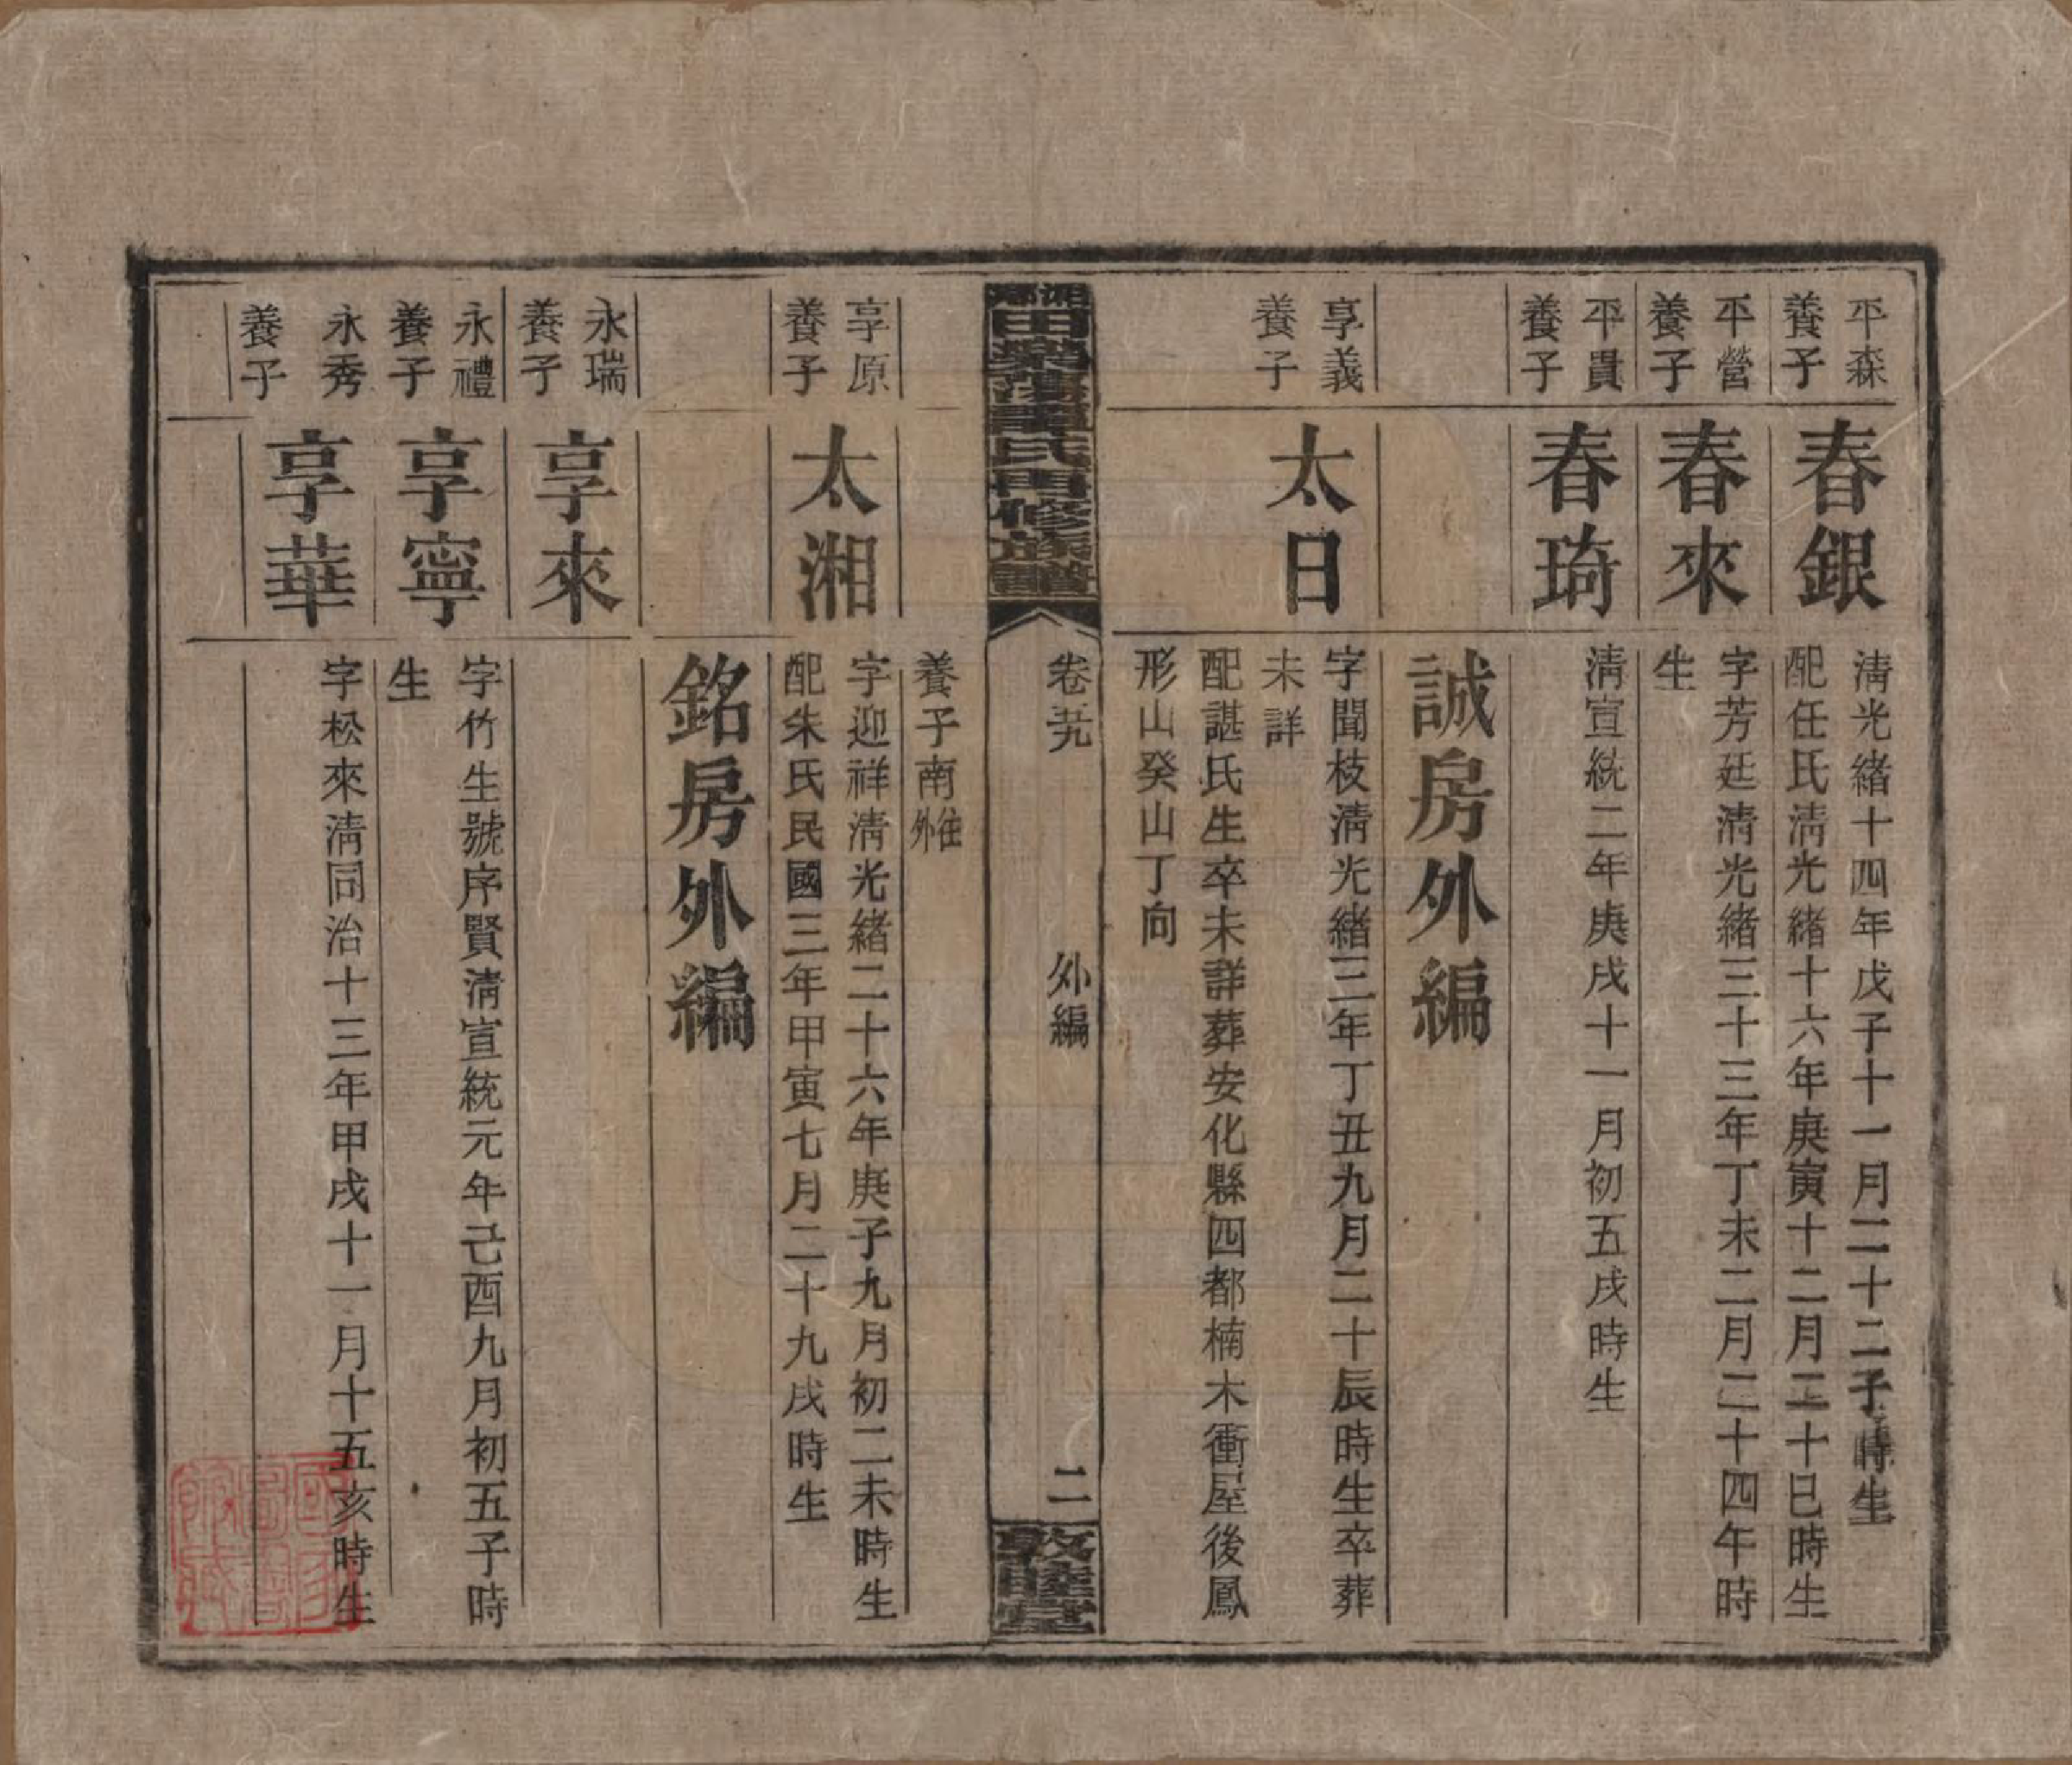 平森
養子
春銀
清光緒十四年戊子十一月二十二子時生
配任氏清光緒十六年庚寅十二月二十巳時生
平營
養子
春來
字芳廷清光緒三十三年丁未二月二十四午時
生
平貴
養子
春琦
清宣統二年庚戌十一月初五戌時生
誠房外編
享義
養子
太日
字聞枝清光緒三年丁丑九月二十辰時生卒葬
未詳
配諶氏生卒未詳葬安化縣四都楠木衝屋後鳳
形山癸山丁向
湘鄉田樂蕩譚氏四修族譜
卷
外編
二
敦睦堂
養子南外
享原
養子
太湘
字迎祥清光緒二十六年庚子九月初二未時生
配朱氏民國三年甲寅七月二十九戌時生
銘房外編
永瑞
養子
享來
永禮
養子
享寧
字竹生號序賢清宣統元年己酉九月初五子時
生
永秀
養子
享華
字松來清同治十三年甲戌十一月十五亥時生